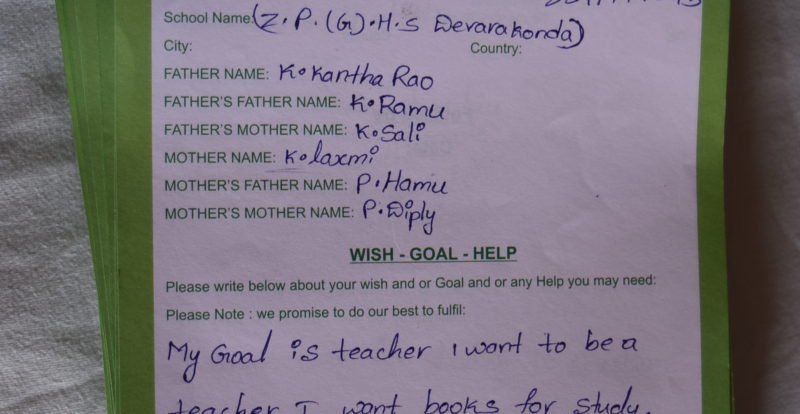 School Name (Z.P.(G).H.S Devarakonda)
City: Country:
FATHER NAME: K.Kantha Rao
FATHER'S FATHER NAME: K.Ramu
FATHER'S MOTHER NAME: K.Sali
MOTHER NAME: K.laxmi
MOTHER'S FATHER NAME: P.Hamu
MOTHER'S MOTHER NAME: P.Diply
WISH - GOAL - HELP
Please write below about your wish and or Goal and or any Help you may need:
Please Note : we promise to do our best to fulfil:
My Goal is teacher I want to be a
teacher I want books for study.